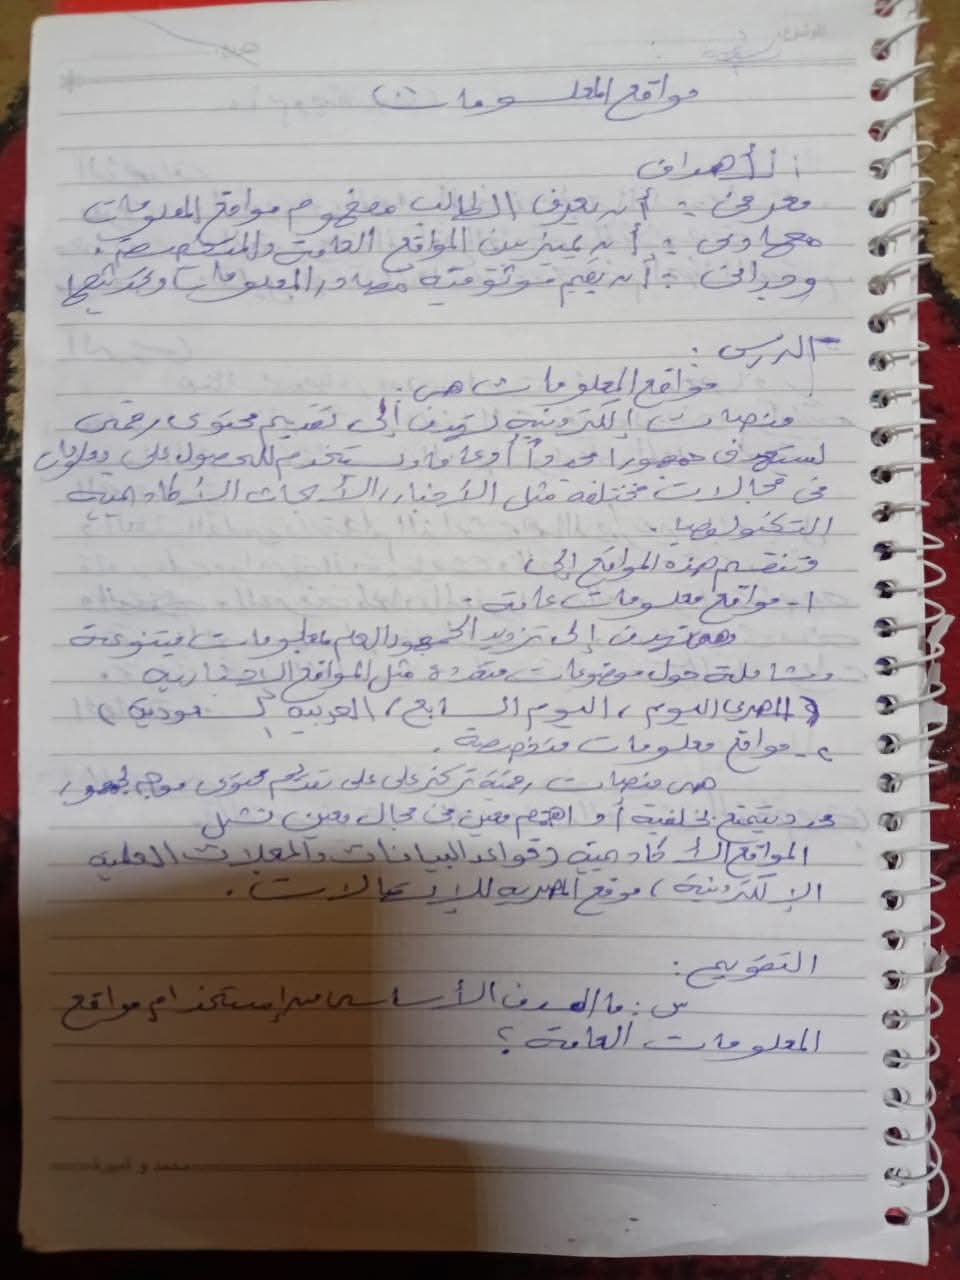 مواقع المعلومات (١)
الأهداف
معرفى : أن يعرف الطالب مفهوم مواقع المعلومات
مهاوى : أن يميز بين المواقع العامة والمتخصصة.
وجدانى : أن يقيم موثوقية مصادر المعلومات وحداثتها
الدرس :
مواقع المعلومات هى :
منصات إلكترونية تهدف إلى تقديم محتوى رقمى
تستهدف جمهورا محددا أو عاما وتستخدم للحصول على
فى مجالات مختلفة مثل الأخبار، الأبحاث الأكاديمية
التكنولوجيا.
وتنقسم هذه المواقع إلى
١- مواقع معلومات عامة :
تهدف إلى تزويد الجمهور العام بمعلومات متنوعة
وشاملة حول موضوعات متعددة مثل المواقع الإخبارية
( المصرى اليوم ، اليوم السابع ، العربية السعودية )
٢- مواقع معلومات متخصصة.
هى منصات رقمية تركز على على تقديم محتوى موجه لجمهور
محدد يتمتع بخلفية أو اهتمام معين فى مجال معين تشمل
المواقع الأكاديمية (قواعد البيانات والمجلات العلمية
الإلكترونية ، موقع المصرية للإتصالات.
التقويم :
س : ما الهدف الأساسى من إستخدام مواقع
المعلومات العامة ؟